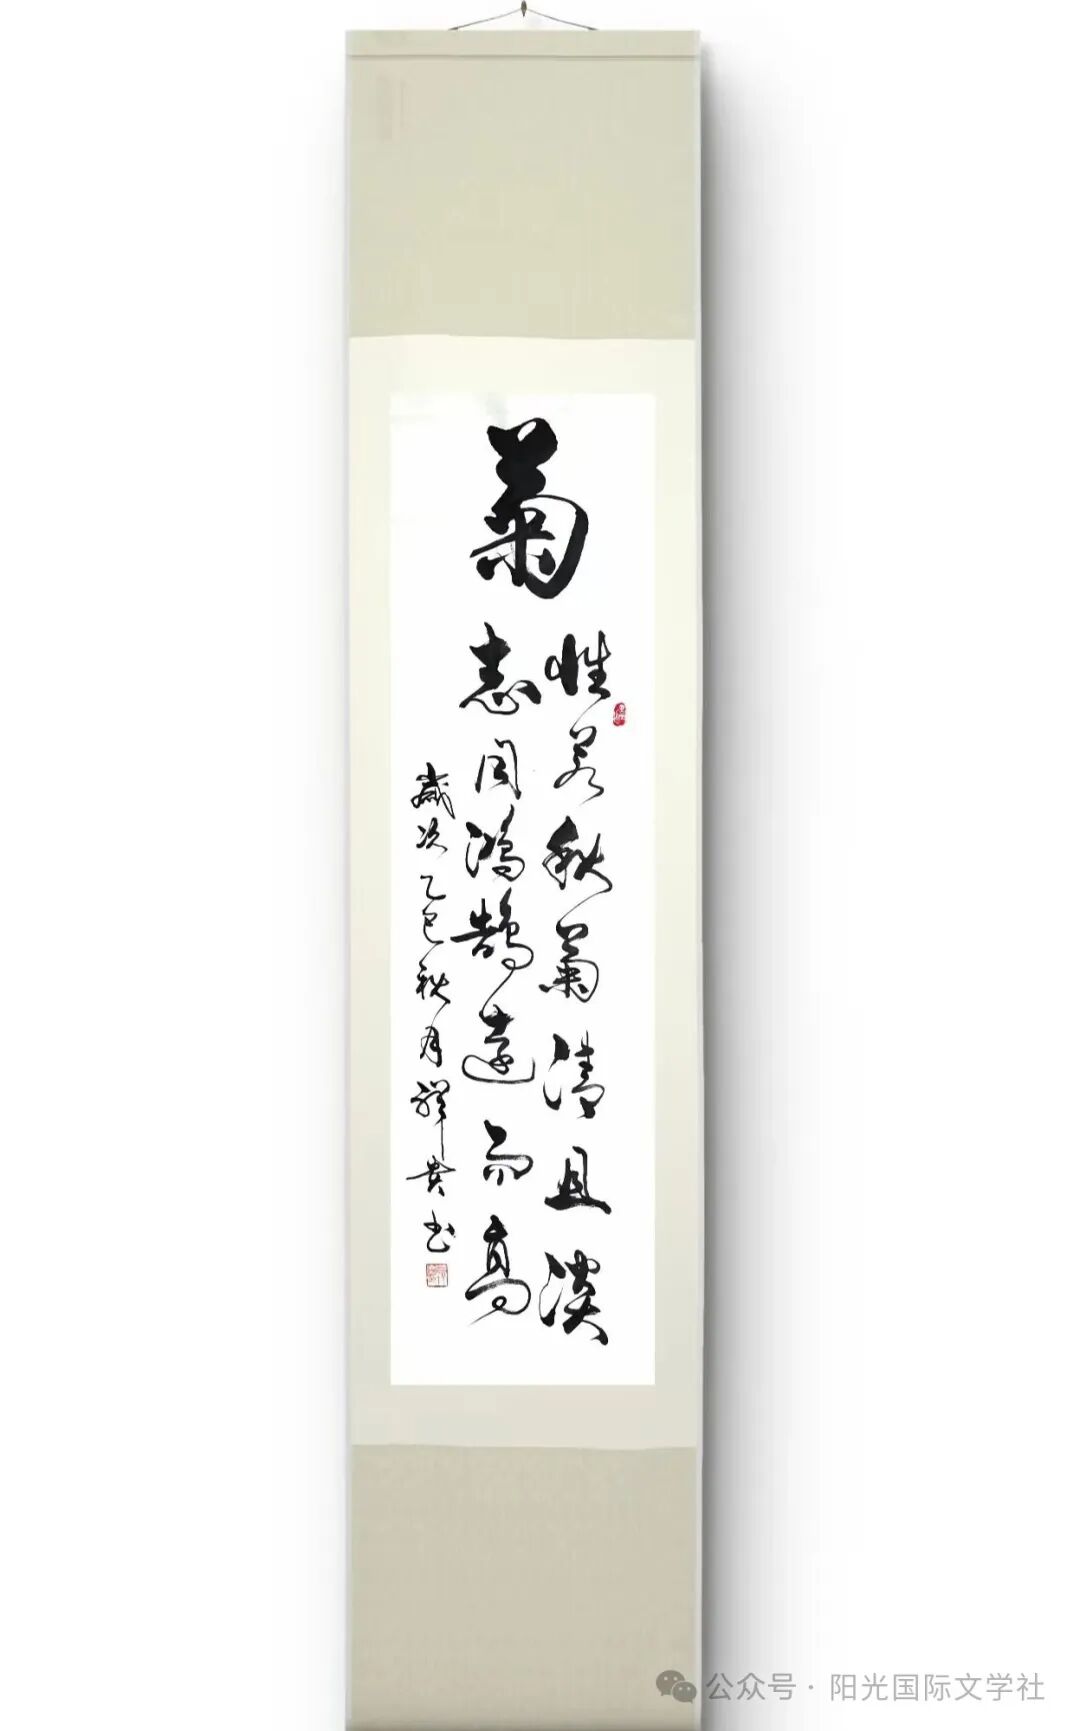 菊
性若秋菊清且淡
志同鸿鹄远而高
岁次乙巳秋月祥贵书
公众号·阳光国际文学社